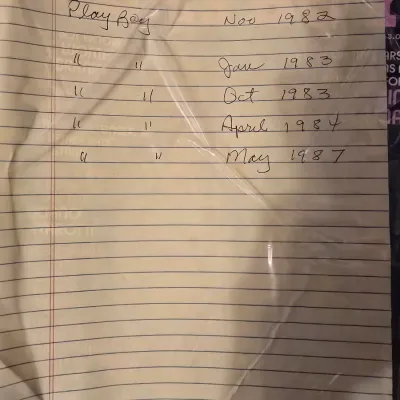 Play Boy Nov 1982
" " Jan 1983
" " Oct 1983
" " April 1984
" " May 1987